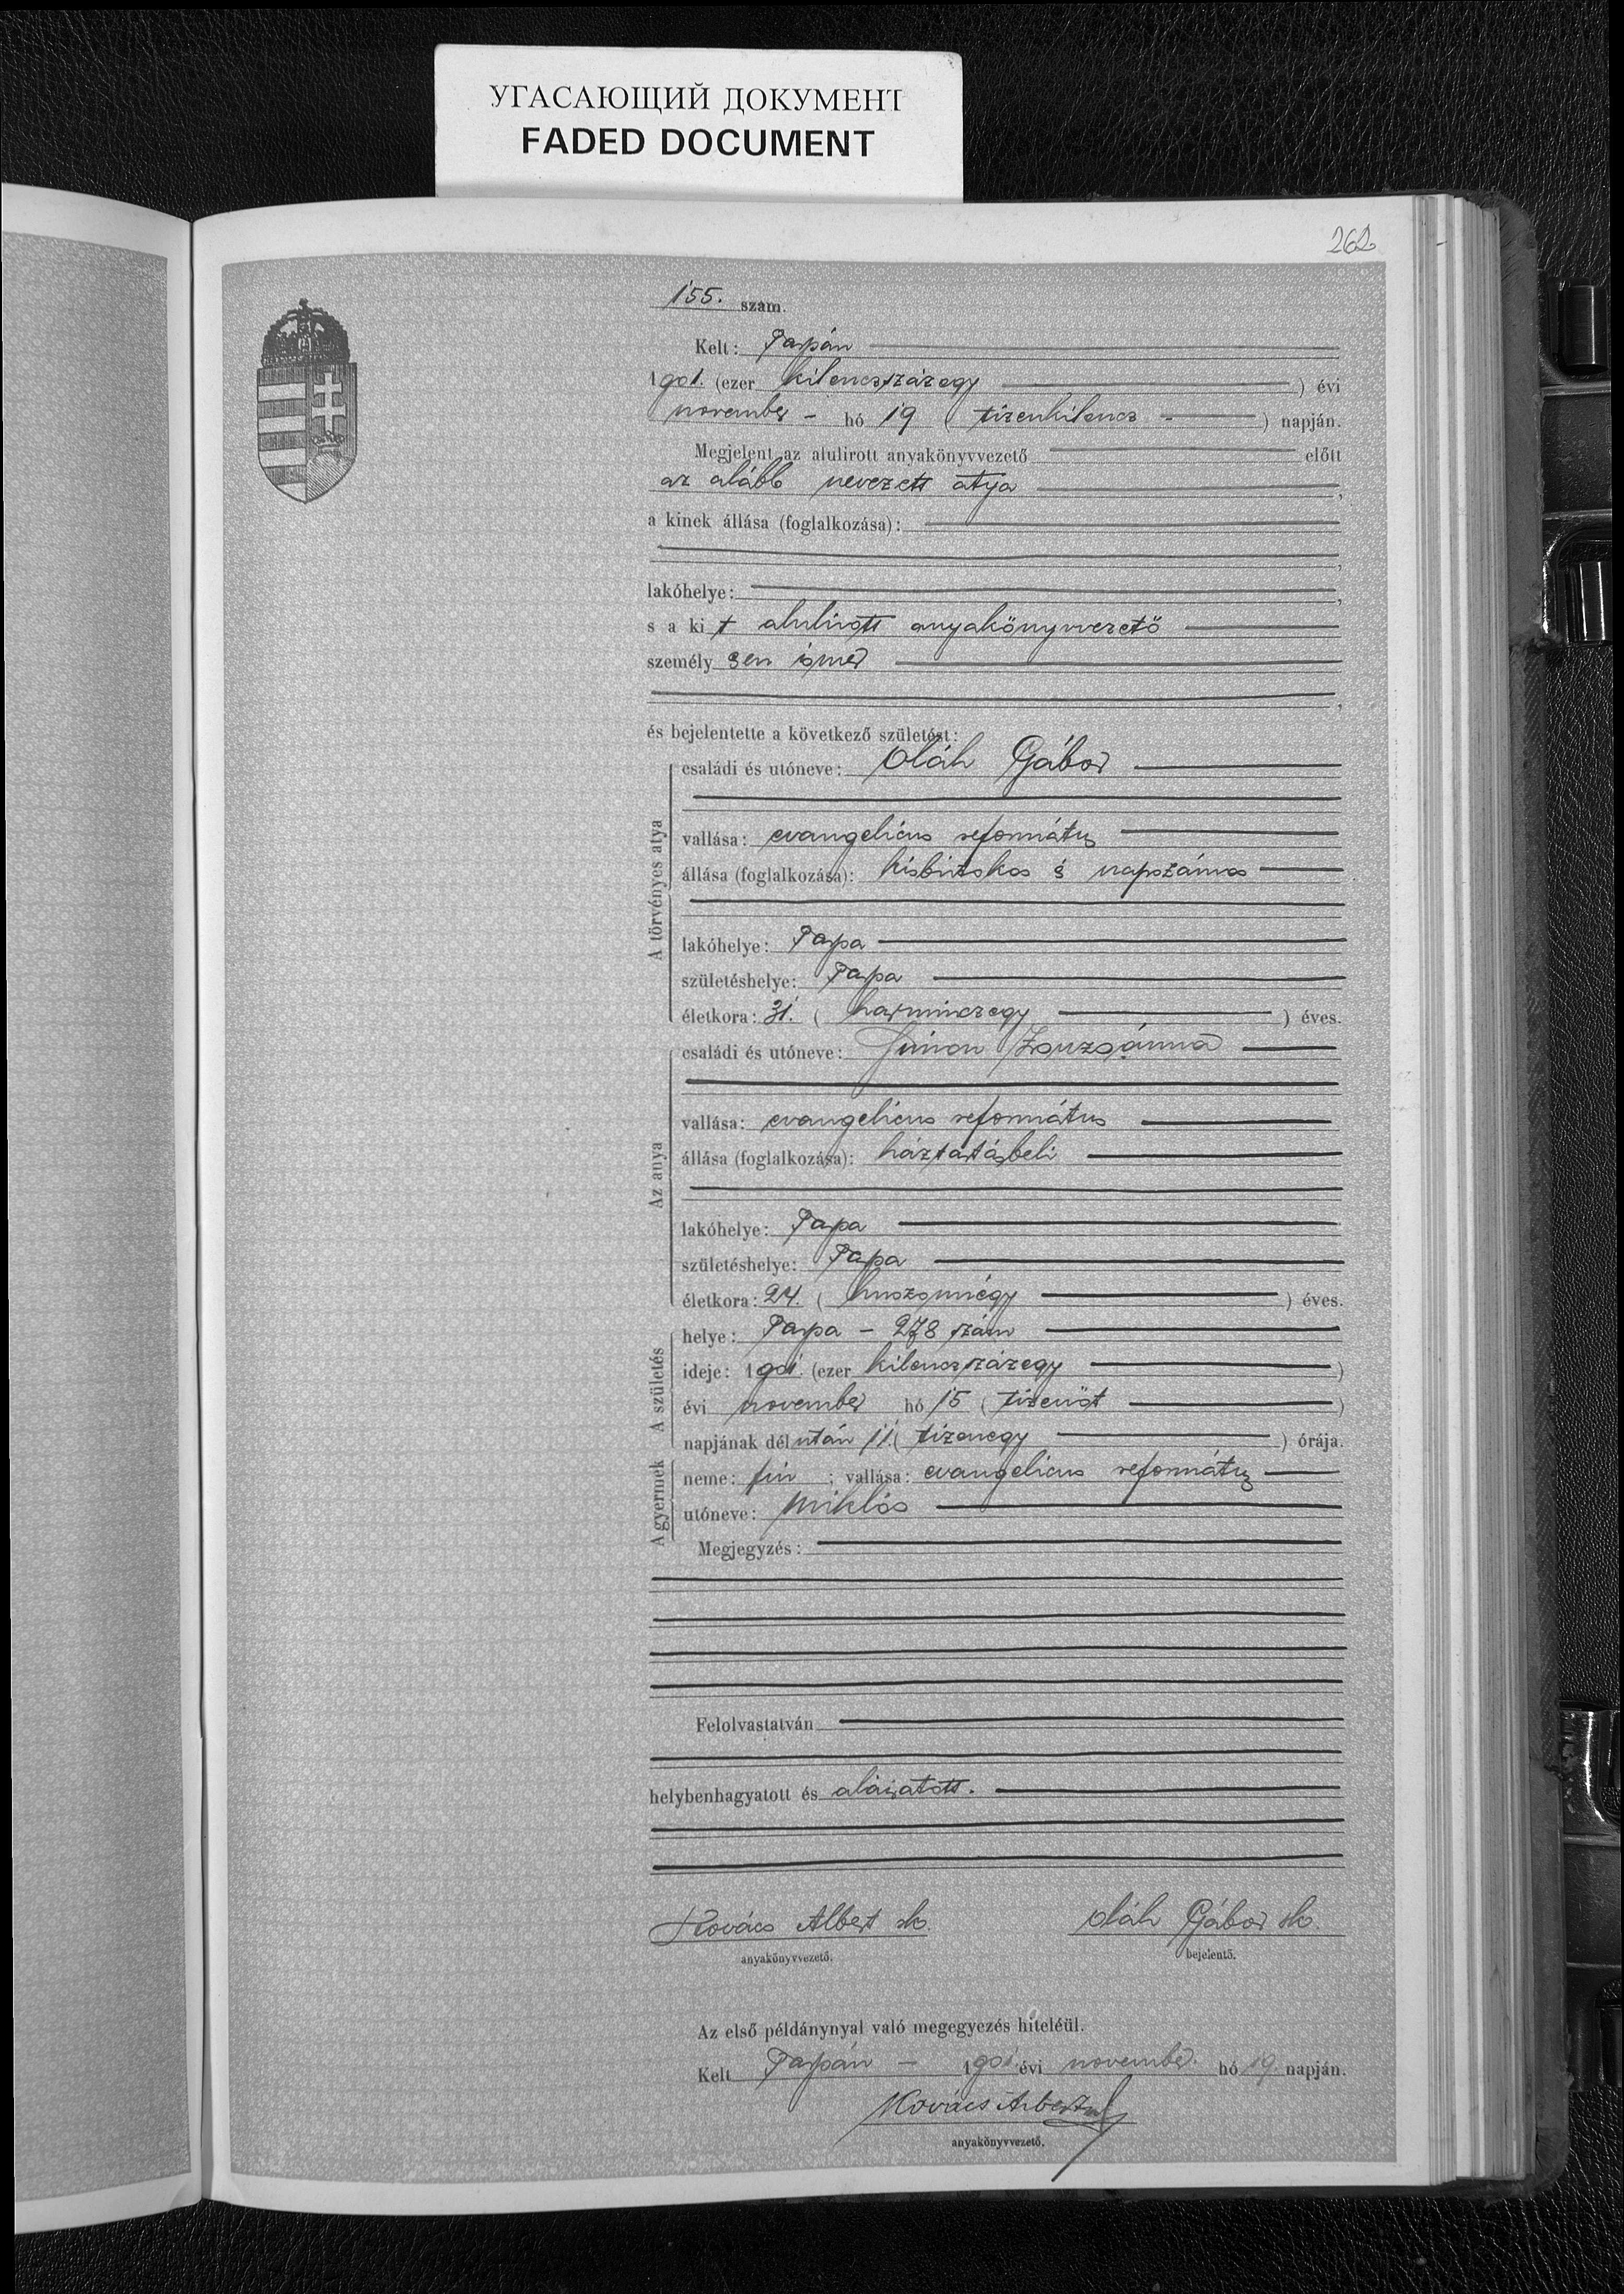 УГАСАЮЩИЙ ДОКУМЕНТ
FADED DOCUMENT
262
155. szám.
Kelt: Tarpán
1901. (ezer kilenczszázegy ) évi
november - hó 19 ( tizenkilencz - ) napján.
Megjelent az alulirott anyakönyvvezető előtt
az alább nevezett atya ,
a kinek állása (foglalkozása):
,
lakóhelye: ,
s a kit alulirott anyakönyvvezető
személyesen ismer
,
és bejelentette a következő születést:
A törvényes atya
családi és utóneve: Oláh Gábor
vallása: evangelicus református
állása (foglalkozása): kisbirtokos és napszámos
lakóhelye: Tarpa
születéshelye: Tarpa
életkora: 31. ( harminczegy ) éves.
Az anya
családi és utóneve: Simon Zsuzsánna
vallása: evangelicus református
állása (foglalkozása): háztartásbeli
lakóhelye: Tarpa
születéshelye: Tarpa
életkora: 24. ( huszonnégy ) éves.
A születés
helye: Tarpa - 278 szám
ideje: 1901. (ezer kilenczszázegy )
évi november hó 15 ( tizenöt )
napjának délután 11. ( tizenegy ) órája.
A gyermek
neme: fiu ; vallása: evangelicus református
utóneve: Miklós
Megjegyzés:
Felolvastatván
helybenhagyatott és aláiratott.
Kovács Albert sk. Oláh Gábor sk.
anyakönyvvezető. bejelentő.
Az első példánynyal való megegyezés hiteléül.
Kelt Tarpán - 1901. évi november. hó 19. napján.
Kovács Albert
anyakönyvvezető.